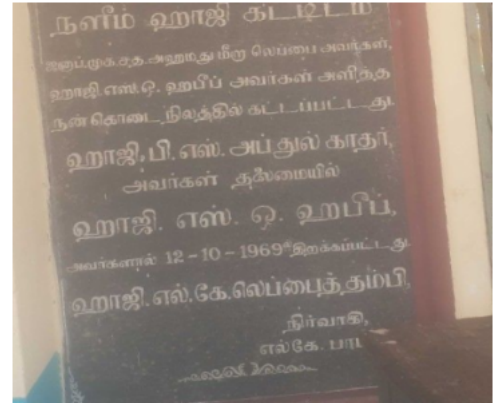 நளீம் ஹாஜி கட்டிடம்
ஜனாப.மு.க.ச.த.அஹமது மீரா லெப்பை அவர்கள்,
ஹாஜி.எஸ்.ஓ. ஹபீப் அவர்கள் அளித்த
நன்கொடை நிலத்தில் கட்டப்பட்டது.
ஹாஜி.பி.எஸ். அப்துல் காதர்,
அவர்கள் தலைமையில்
ஹாஜி. எஸ். ஓ. ஹபீப்,
அவர்களால் 12-10-1969ல் திறக்கப்பட்டது
ஹாஜி.எல்.கே.லெப்பைத்தம்பி,
நிர்வாகி,
எல்கே.